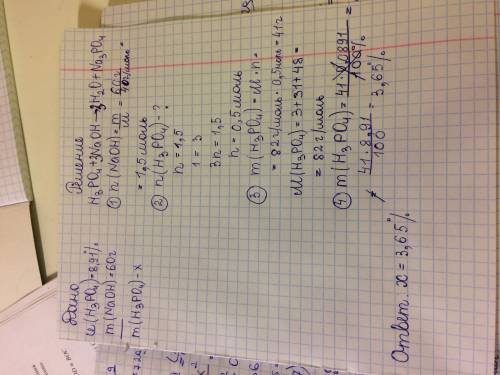 Дано
ω(H₃PO₄)=8,91%
m(NaOH)=60г
m(H₃PO₄)-x
Решение
H₃PO₄+3NaOH→3H₂O+Na₃PO₄
① n(NaOH)=m/M=60г/40г/моль=
=1,5моль
② n(H₃PO₄)-?
n=1,5
1=3
3n=1,5
n=0,5моль
③ m(H₃PO₄)=M·n=
=82г/моль·0,5моль=41г
M(H₃PO₄)=3+31+48=
=82г/моль
④ m(H₃PO₄)=41·0,0891/100%=
=41·8,91/100=3,65%
Ответ: x=3,65%